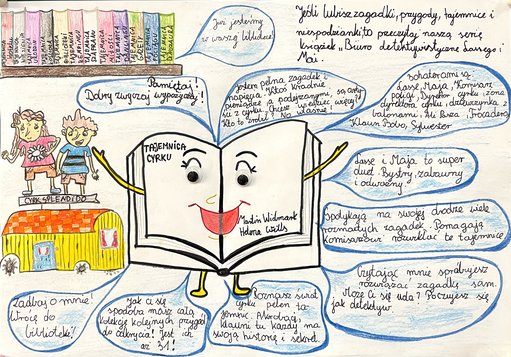 Już jesteśmy
w waszej bibliotece!
Jeśli lubisz zagadki, przygody, tajemnice i
niespodzianki to przeczytaj naszą serię
książek „Biuro detektywistyczne Lassego i
Mai.
Pamiętaj!
Dobry zwyczaj wypożyczaj!
Jestem pełna zagadek i
napięcia. Ktoś kradnie
pieniądze a podejrzanymi są
z cyrku. Chcesz wiedzieć więcej?
Kto to zrobił? No właśnie!
Bohaterami są:
Lasse, Maja, Komisarz
policji, Dyrektor cyrku, żona
dyrektora cyrku, dziewczynka z
balonami, Ali Pasza, Trocadero,
Klaus Bobo, Sylwester
TAJEMNICA
CYRKU
Martin Widmark
Helena Willis
CYRK SPLENDIDO
Lasse i Maja to super
duet. Bystry, zabawny
i odważny.
Spotykają na swojej drodze wiele
rozmaitych zagadek. Pomagają
komisarzowi rozwikłać te tajemnice
Czytając mnie spróbujesz
rozwiązać zagadkę sam.
Może Ci się uda? Poczujesz się
jak detektyw.
Zadbaj o mnie!
Wrócę do
biblioteki!
Jak Ci się
spodoba masz całą
kolekcję kolejnych przygód
do odkrycia! Jest ich
aż 31!
Poznajesz świat
cyrku pełen ta-
jemnic. Akrobaci,
klauni tu każdy ma
swoją historię i sekret.